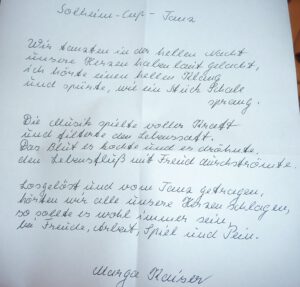 Solheim-Cup- Tanz
Wir tanzten in der hellen Nacht
unsere Herzen haben laut gelacht,
ich hörte einen hellen Klang
und spürte, wie ein Stück Schale
sprang.
Die Musik spielte voller Kraft
und filterte den Lebenssaft.
Das Blut es kochte und es dröhnte,
den Lebensfluß mit Freud durchströmte.
Losgelöst und vom Tanz getragen,
hörten wir alle unsere Herzen schlagen,
so sollte es wohl immer sein,
bei Freude, Arbeit, Spiel und Pein.
Marga Kaiser